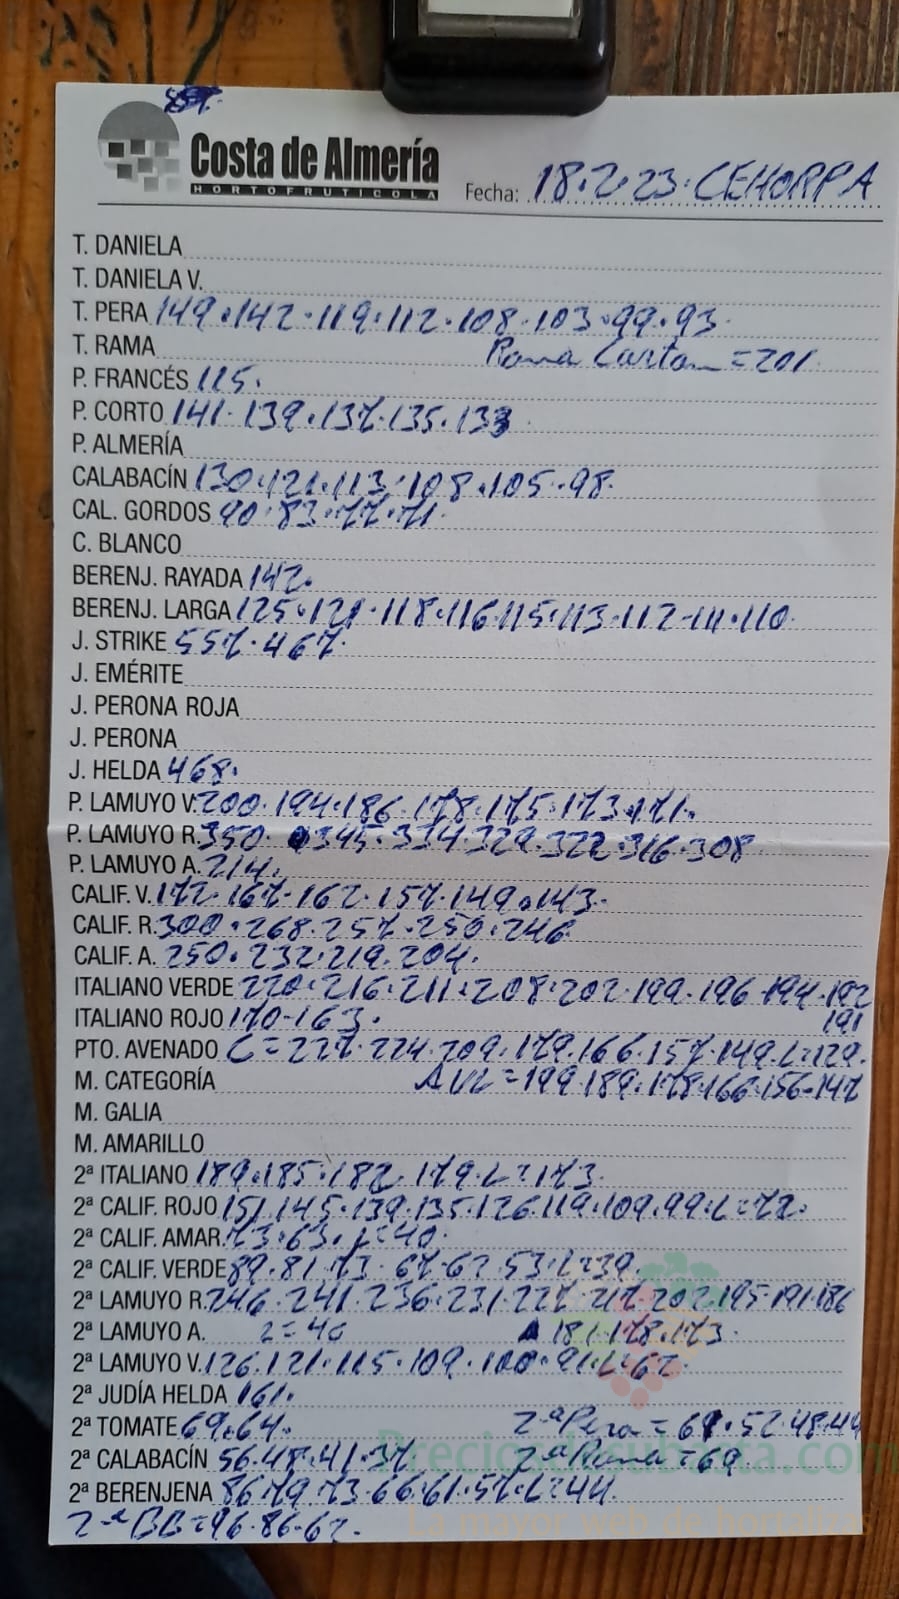 Costa de Almería
HORTOFRUTICOLA
Fecha: 18.2.23. CEHORPA
T. DANIELA
T. DANIELA V.
T. PERA 149.142.119.112.108.103.99.93
T. RAMA Rama Carton = 201
P. FRANCÉS 115.
P. CORTO 141.139.137.135.133
P. ALMERÍA
CALABACÍN 130.121.113.108.105.98.
CAL. GORDOS 90.83.77.71.
C. BLANCO
BERENJ. RAYADA 142.
BERENJ. LARGA 125.121.118.116.115.113.112.111.110
J. STRIKE 557.467
J. EMÉRITE
J. PERONA ROJA
J. PERONA
J. HELDA 468.
P. LAMUYO V. 200.194.186.178.175.173.171.
P. LAMUYO R. 350. 345.334.329.322.316.308
P. LAMUYO A. 214.
CALIF. V. 172.167.162.157.149.143.
CALIF. R. 300.268.257.250.246
CALIF. A. 250.232.219.204.
ITALIANO VERDE 220.216.211.208.202.199.196.194.192
191
ITALIANO ROJO 170-163.
PTO. AVENADO C=227.224.209.179.166.157.149.L=129.
M. CATEGORÍA =199.189.178.166.156.147
M. GALIA
M. AMARILLO
2ª ITALIANO 189.185.182.179.L=173.
2ª CALIF. ROJO 151.145.139.135.126.119.109.99.L=72.
2ª CALIF. AMAR. 73.63.L=40.
2ª CALIF. VERDE 89.81.73.67.62.53.L=39.
2ª LAMUYO R. 246.241.236.231.227.217.202.195.191.186
2ª LAMUYO A. L=40 181.178.173.
2ª LAMUYO V. 126.121.115.109.100.91.L=62.
2ª JUDÍA HELDA 161.
2ª TOMATE 69.64. 2ª Pera = 61.52.48.44
2ª CALABACÍN 56.47.41.37 2ª Rama = 69.
2ª BERENJENA 86.79.73.66.61.57.L=44.
2ª BB=96.86.62.
Preciosdesubasta.com
La mayor web de hortalizas